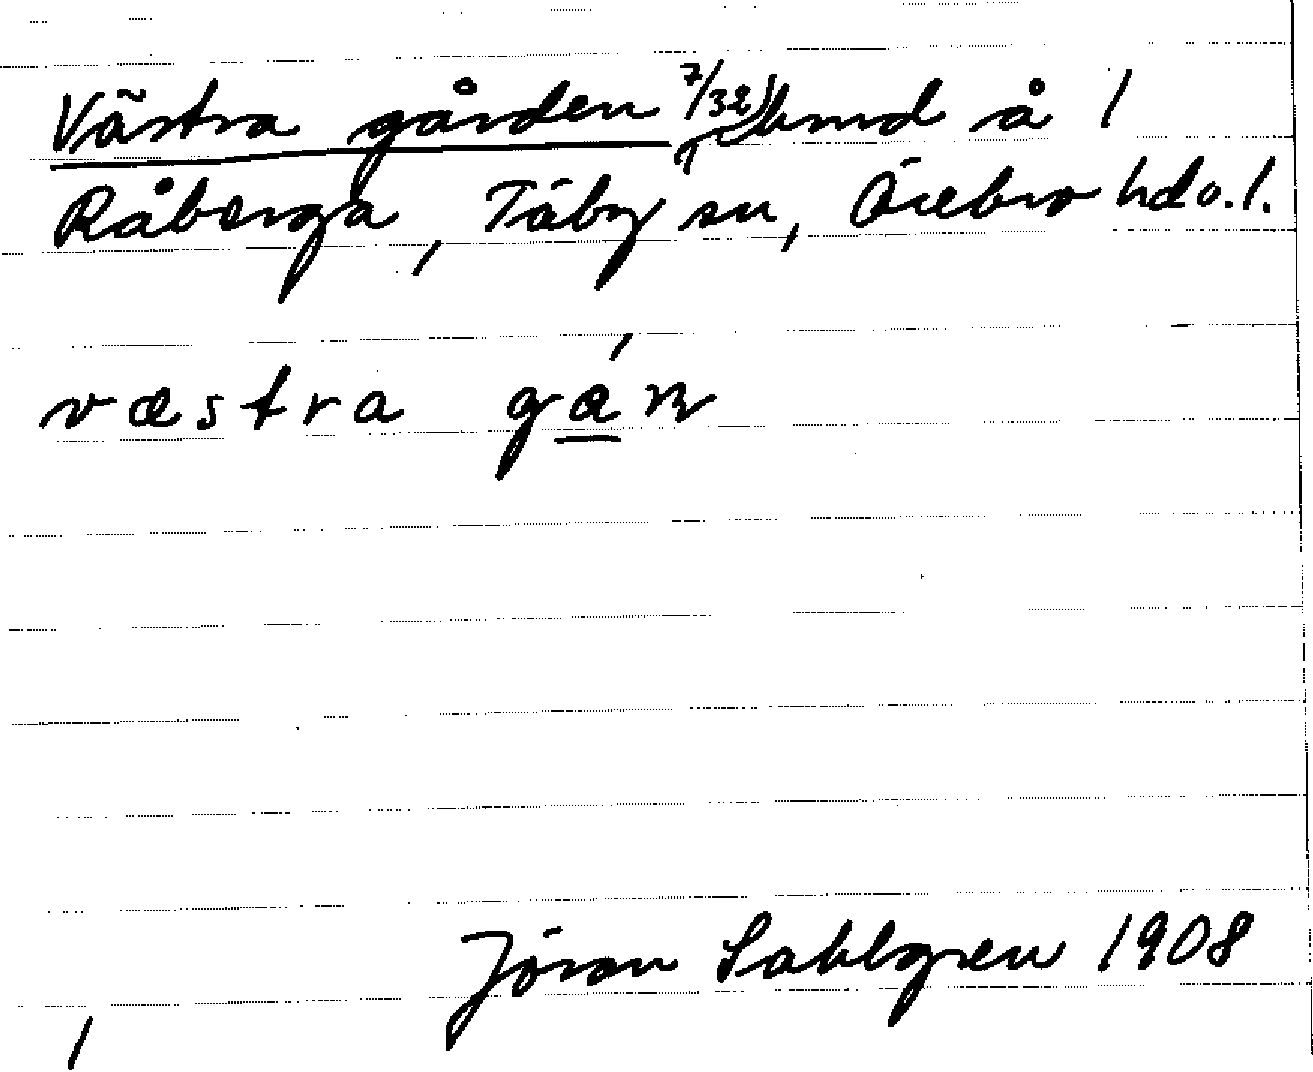 Västra gården 7/32) hmd å 1
Råberga, Täby sn, Örebro hd ö. l.
væstra gán
Jöran Sahlgren 1908
1